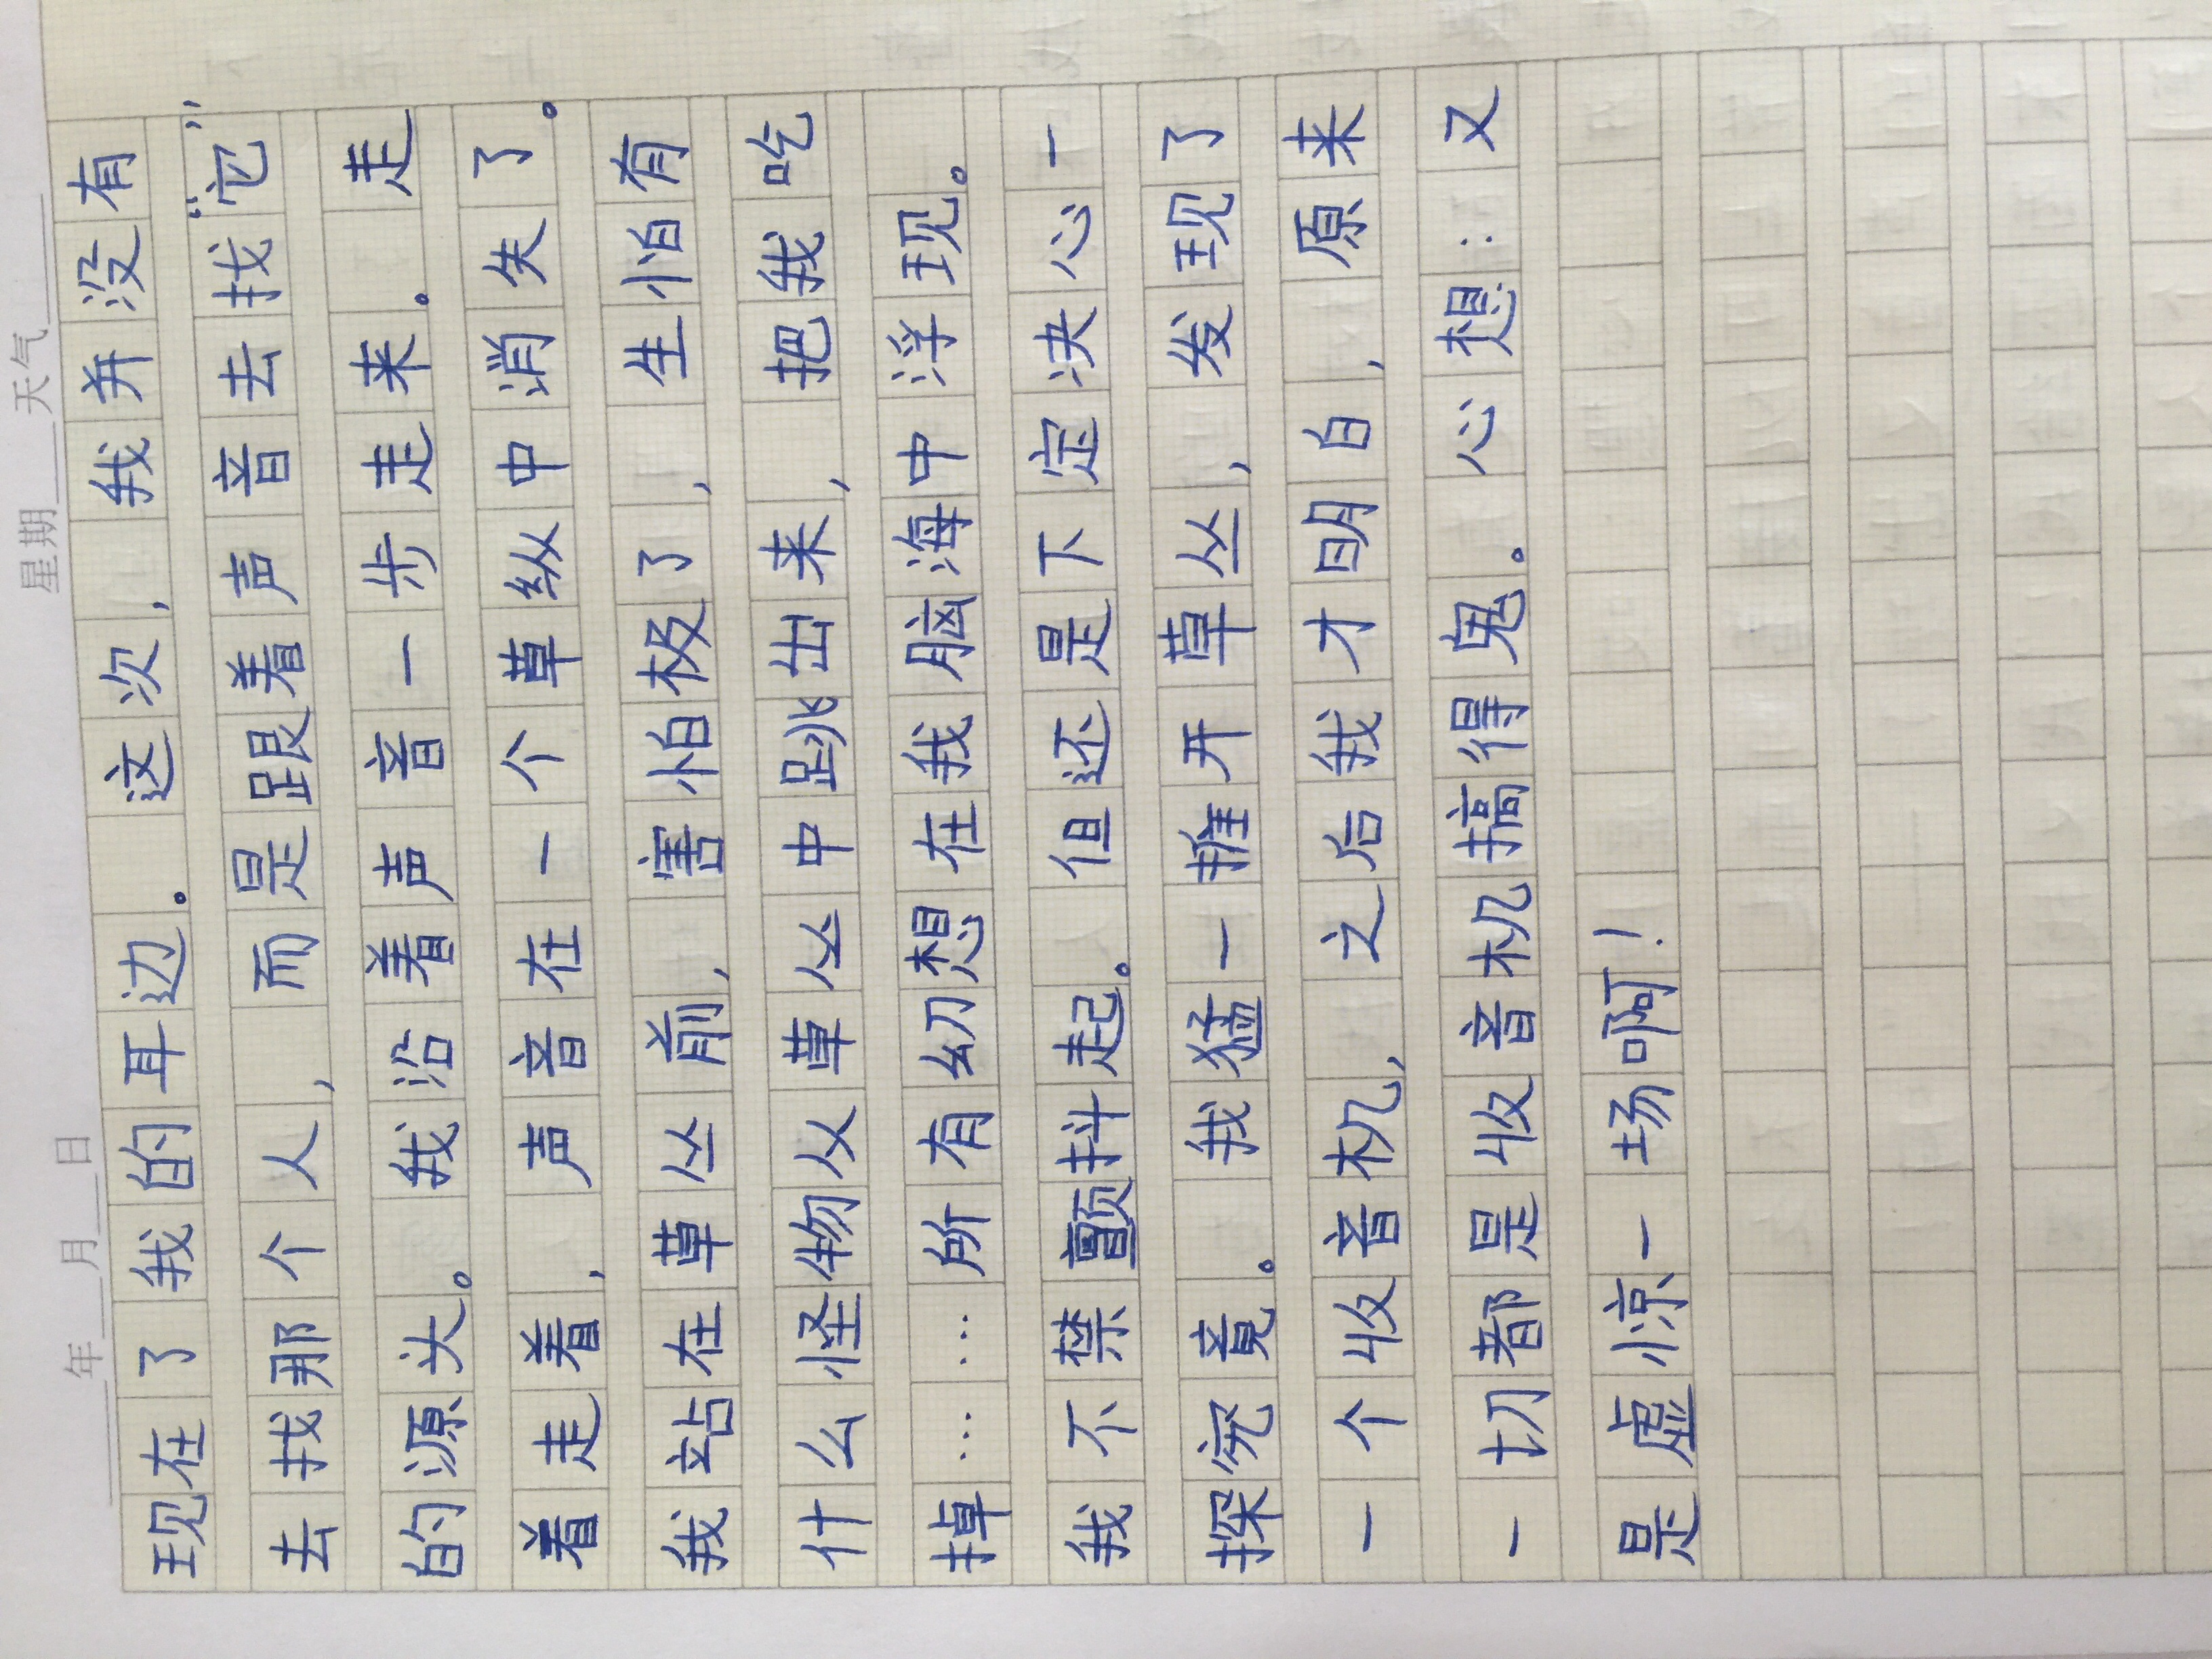 年 月 日 星期 天气
现在了我的耳边。这次，我并没有
去找那个人，而是跟着声音去找“它”
的源头。我沿着声音一步走来。走
着走着，声音在一个草纵中消失了。
我站在草丛前，害怕极了，生怕有
什么怪物从草丛中跳出来，把我吃
掉……所有幻想在我脑海中浮现。
我不禁颤抖起。但还是下定决心一
探究竟。我猛一推开草丛，发现了
一个收音机，之后我才明白，原来
一切都是收音机搞得鬼。心想：又
是虚惊一场啊！